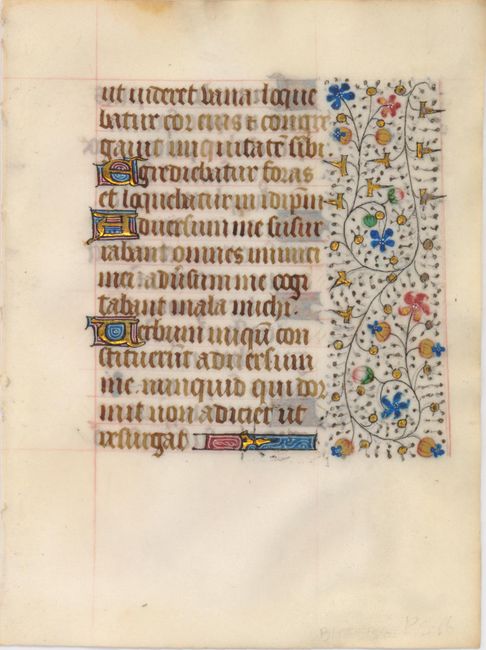 ut videret vana loque
batur cor eius & congre
gavit iniquitate sibi
Egrediebatur foras
et loquebatur in idipm
Adversum me susur
rabant omnes inimici
mei adversum me cogi
tabant mala michi
Verbum iniqu con
stituerut adversum
me nunquid qui dor
mit non adiciet ut
resurgat